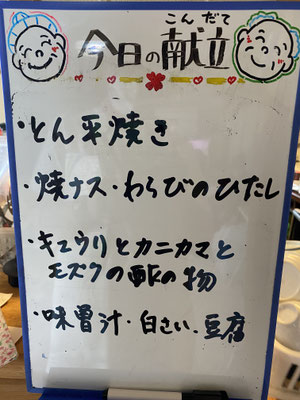 こんだて
今日の献立
・とん平焼き
・焼ナス・わらびのひたし
・キュウリとカニカマと
モズクの酢の物
・味噌汁・白さい、豆腐